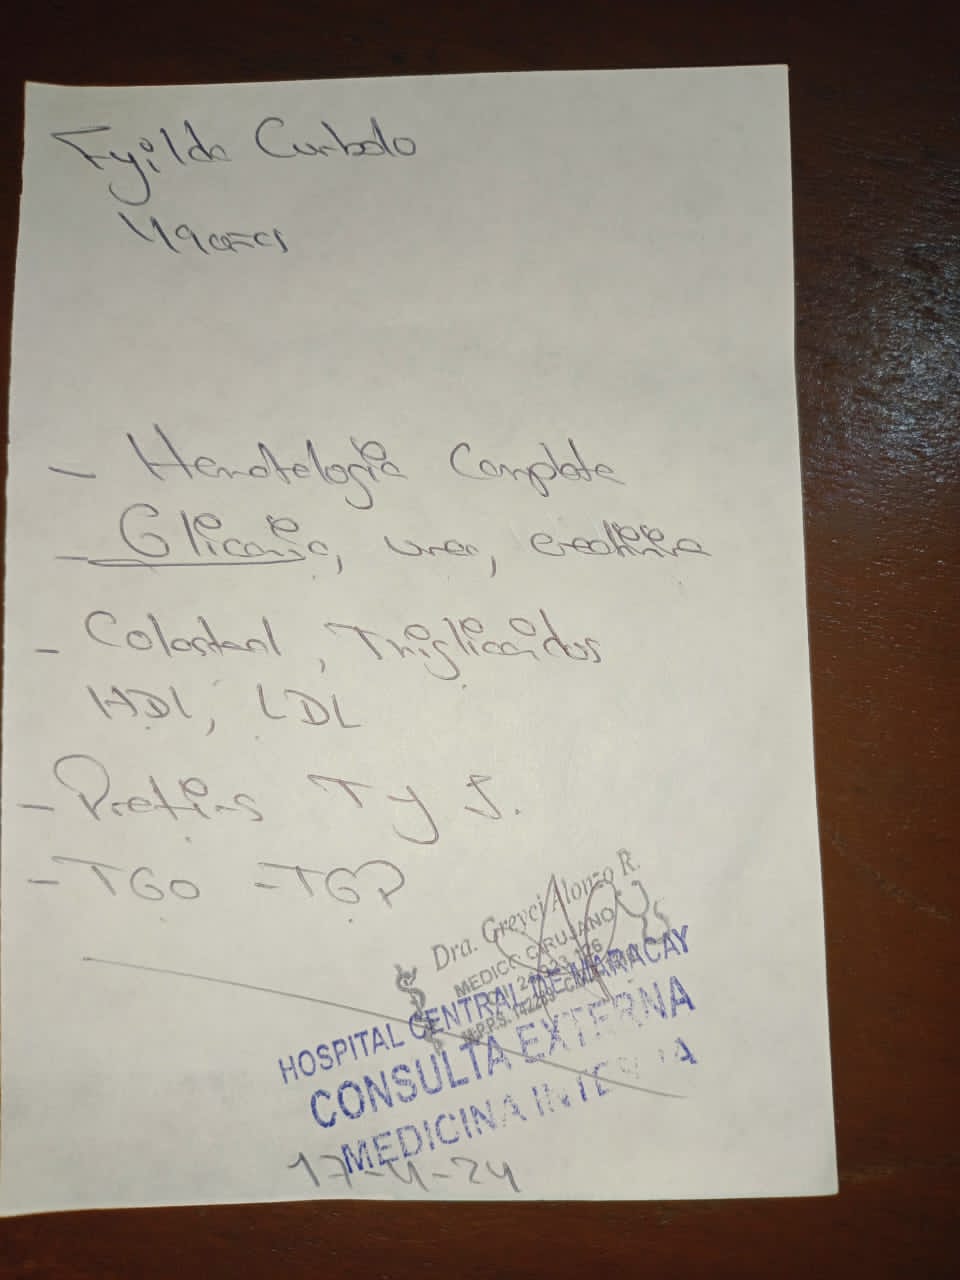 Curbelo
49 años
- Hematología Completa
- Glicemia, urea, creatinina
- Colesterol, Trigliceridos
HDL, LDL
- Proteinas T y F.
- TGO - TGP
Dra. Greyci Alonzo R.
MEDICO CIRUJANO
HOSPITAL CENTRAL DE MARACAY
CONSULTA EXTERNA
MEDICINA INTERNA
17-4-24